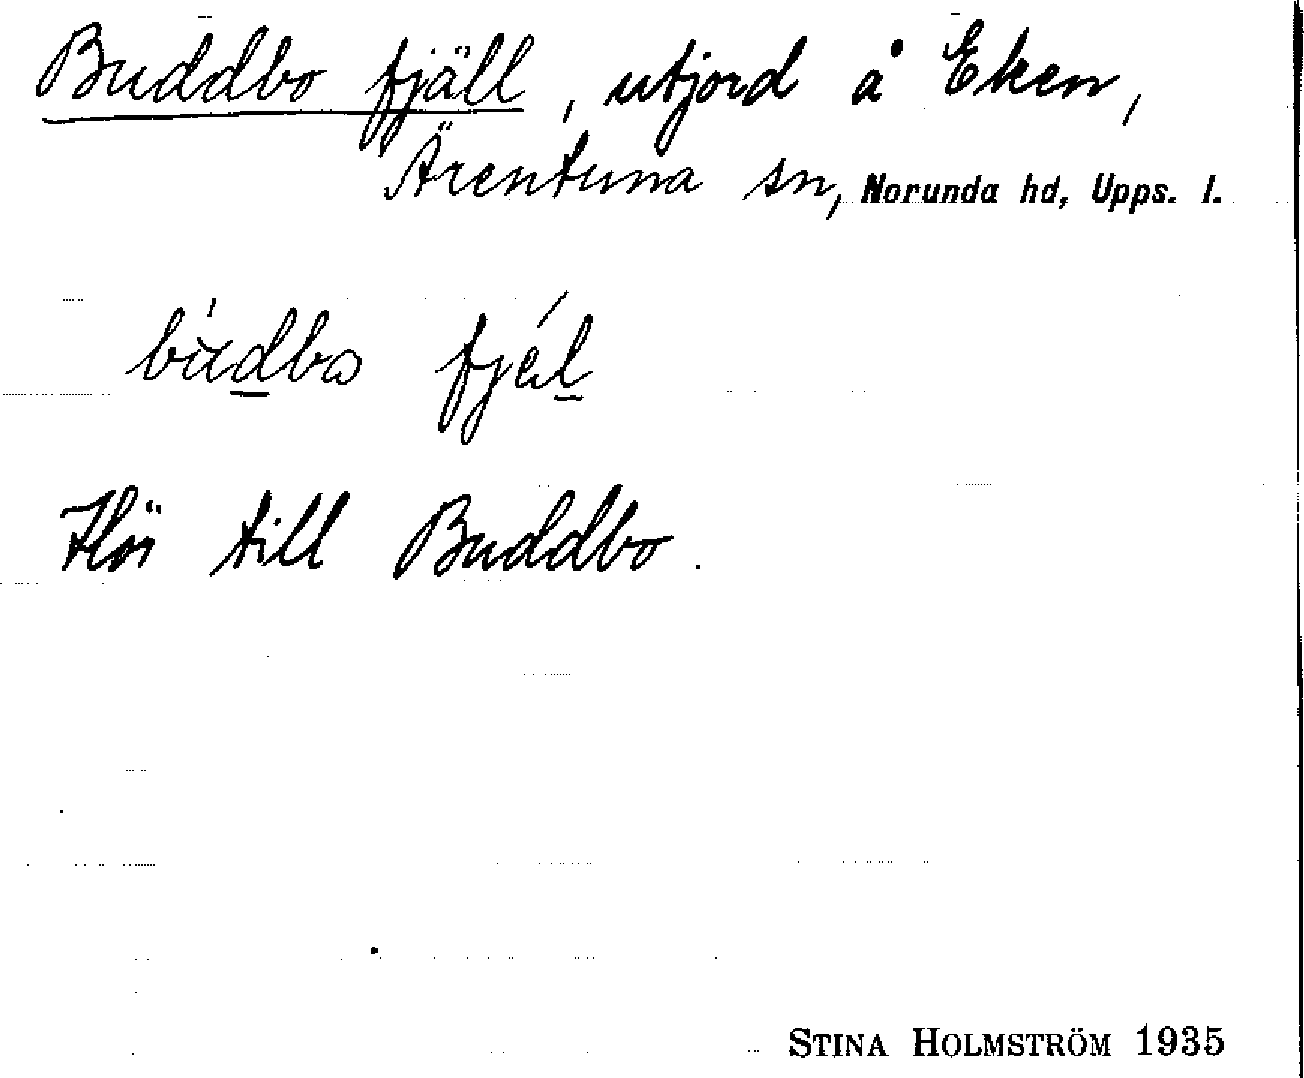 Buddbo fjäll, utjord å Eken,
Ärentuna sn, Norunda hd, Upps. l.
bùdbo fjél
Hör till Buddbo.
STINA HOLMSTRÖM 1935